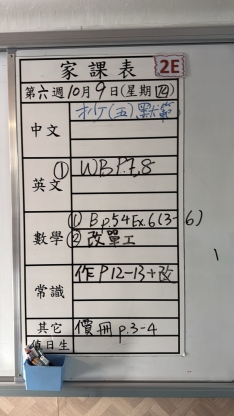 家課表 2E
第六週10月9日(星期四)
中文
(五)默第
英文 ① WB P.7,8
① B p.54 Ex.6(3-6)
數學 ② 改單工
常識 作 P12-13+改
其它 價冊 p.3-4
值日生